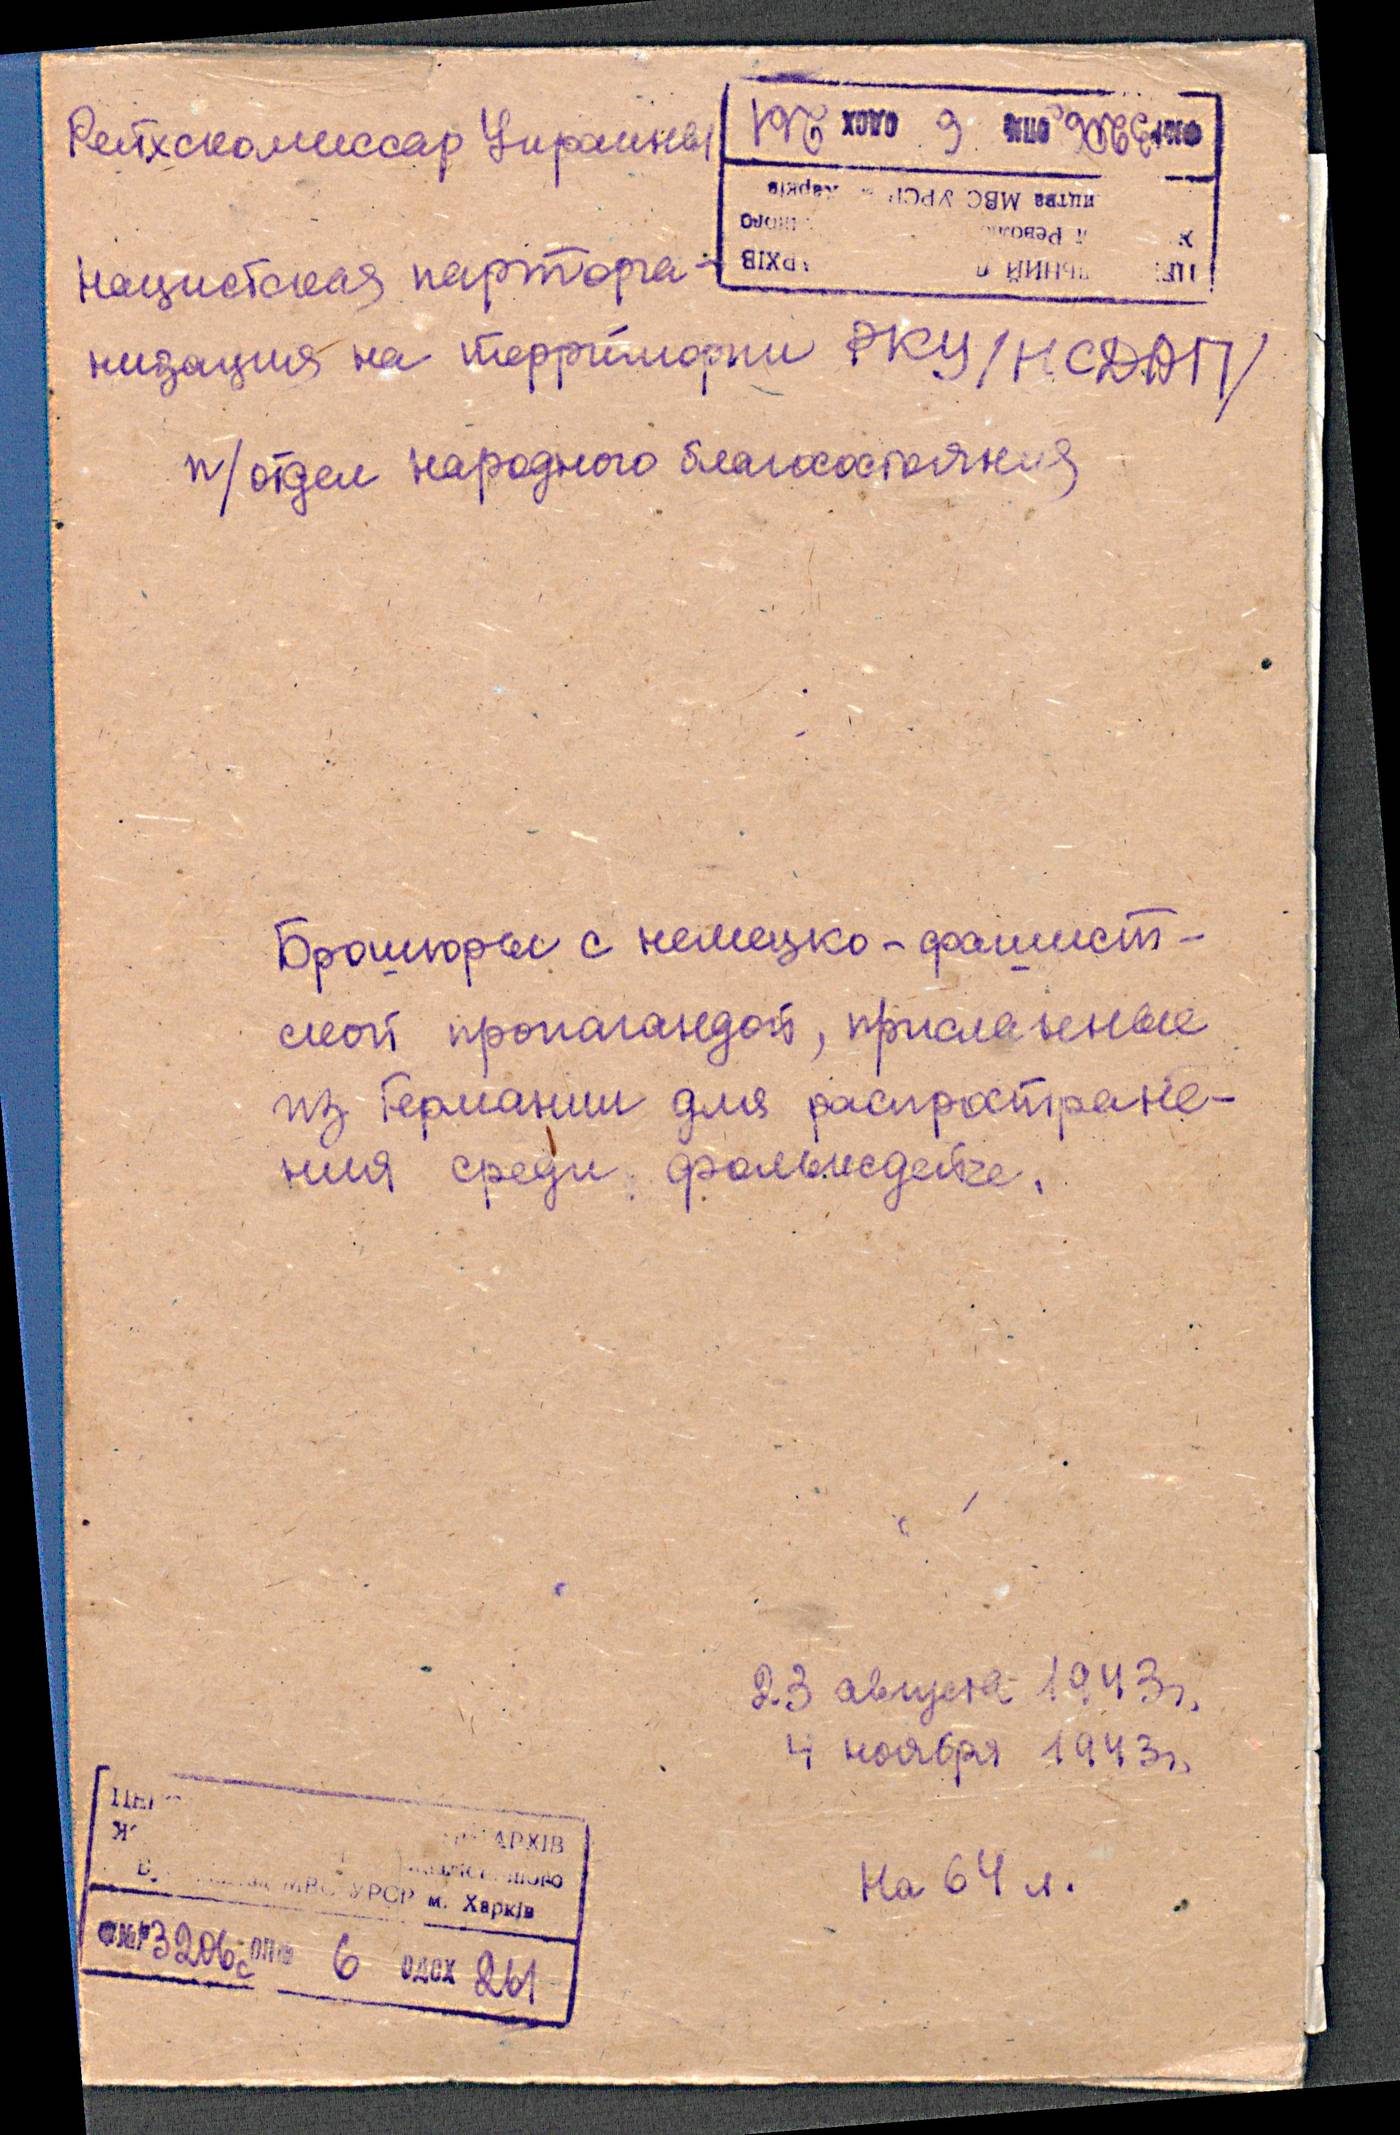 Рейхскомиссар Украины
нацистская партторга-
низация на территории РКУ/НСДАП/
п/отдел народного благосостояния
Брошюры с немецко-фашист-
ской пропагандой, присланные
из Германии для распростране-
ния среди фольксдейче.
23 августа 1943г.
4 ноября 1943г.
На 64 л.
АРХІВ
МВС УРСР м. Харків
ФМР 3206с ОПМ 6 ОДСХ 261
АРХІВ
МВС УРСР Харків
3206с ОПМ 6 ОДСХ 261